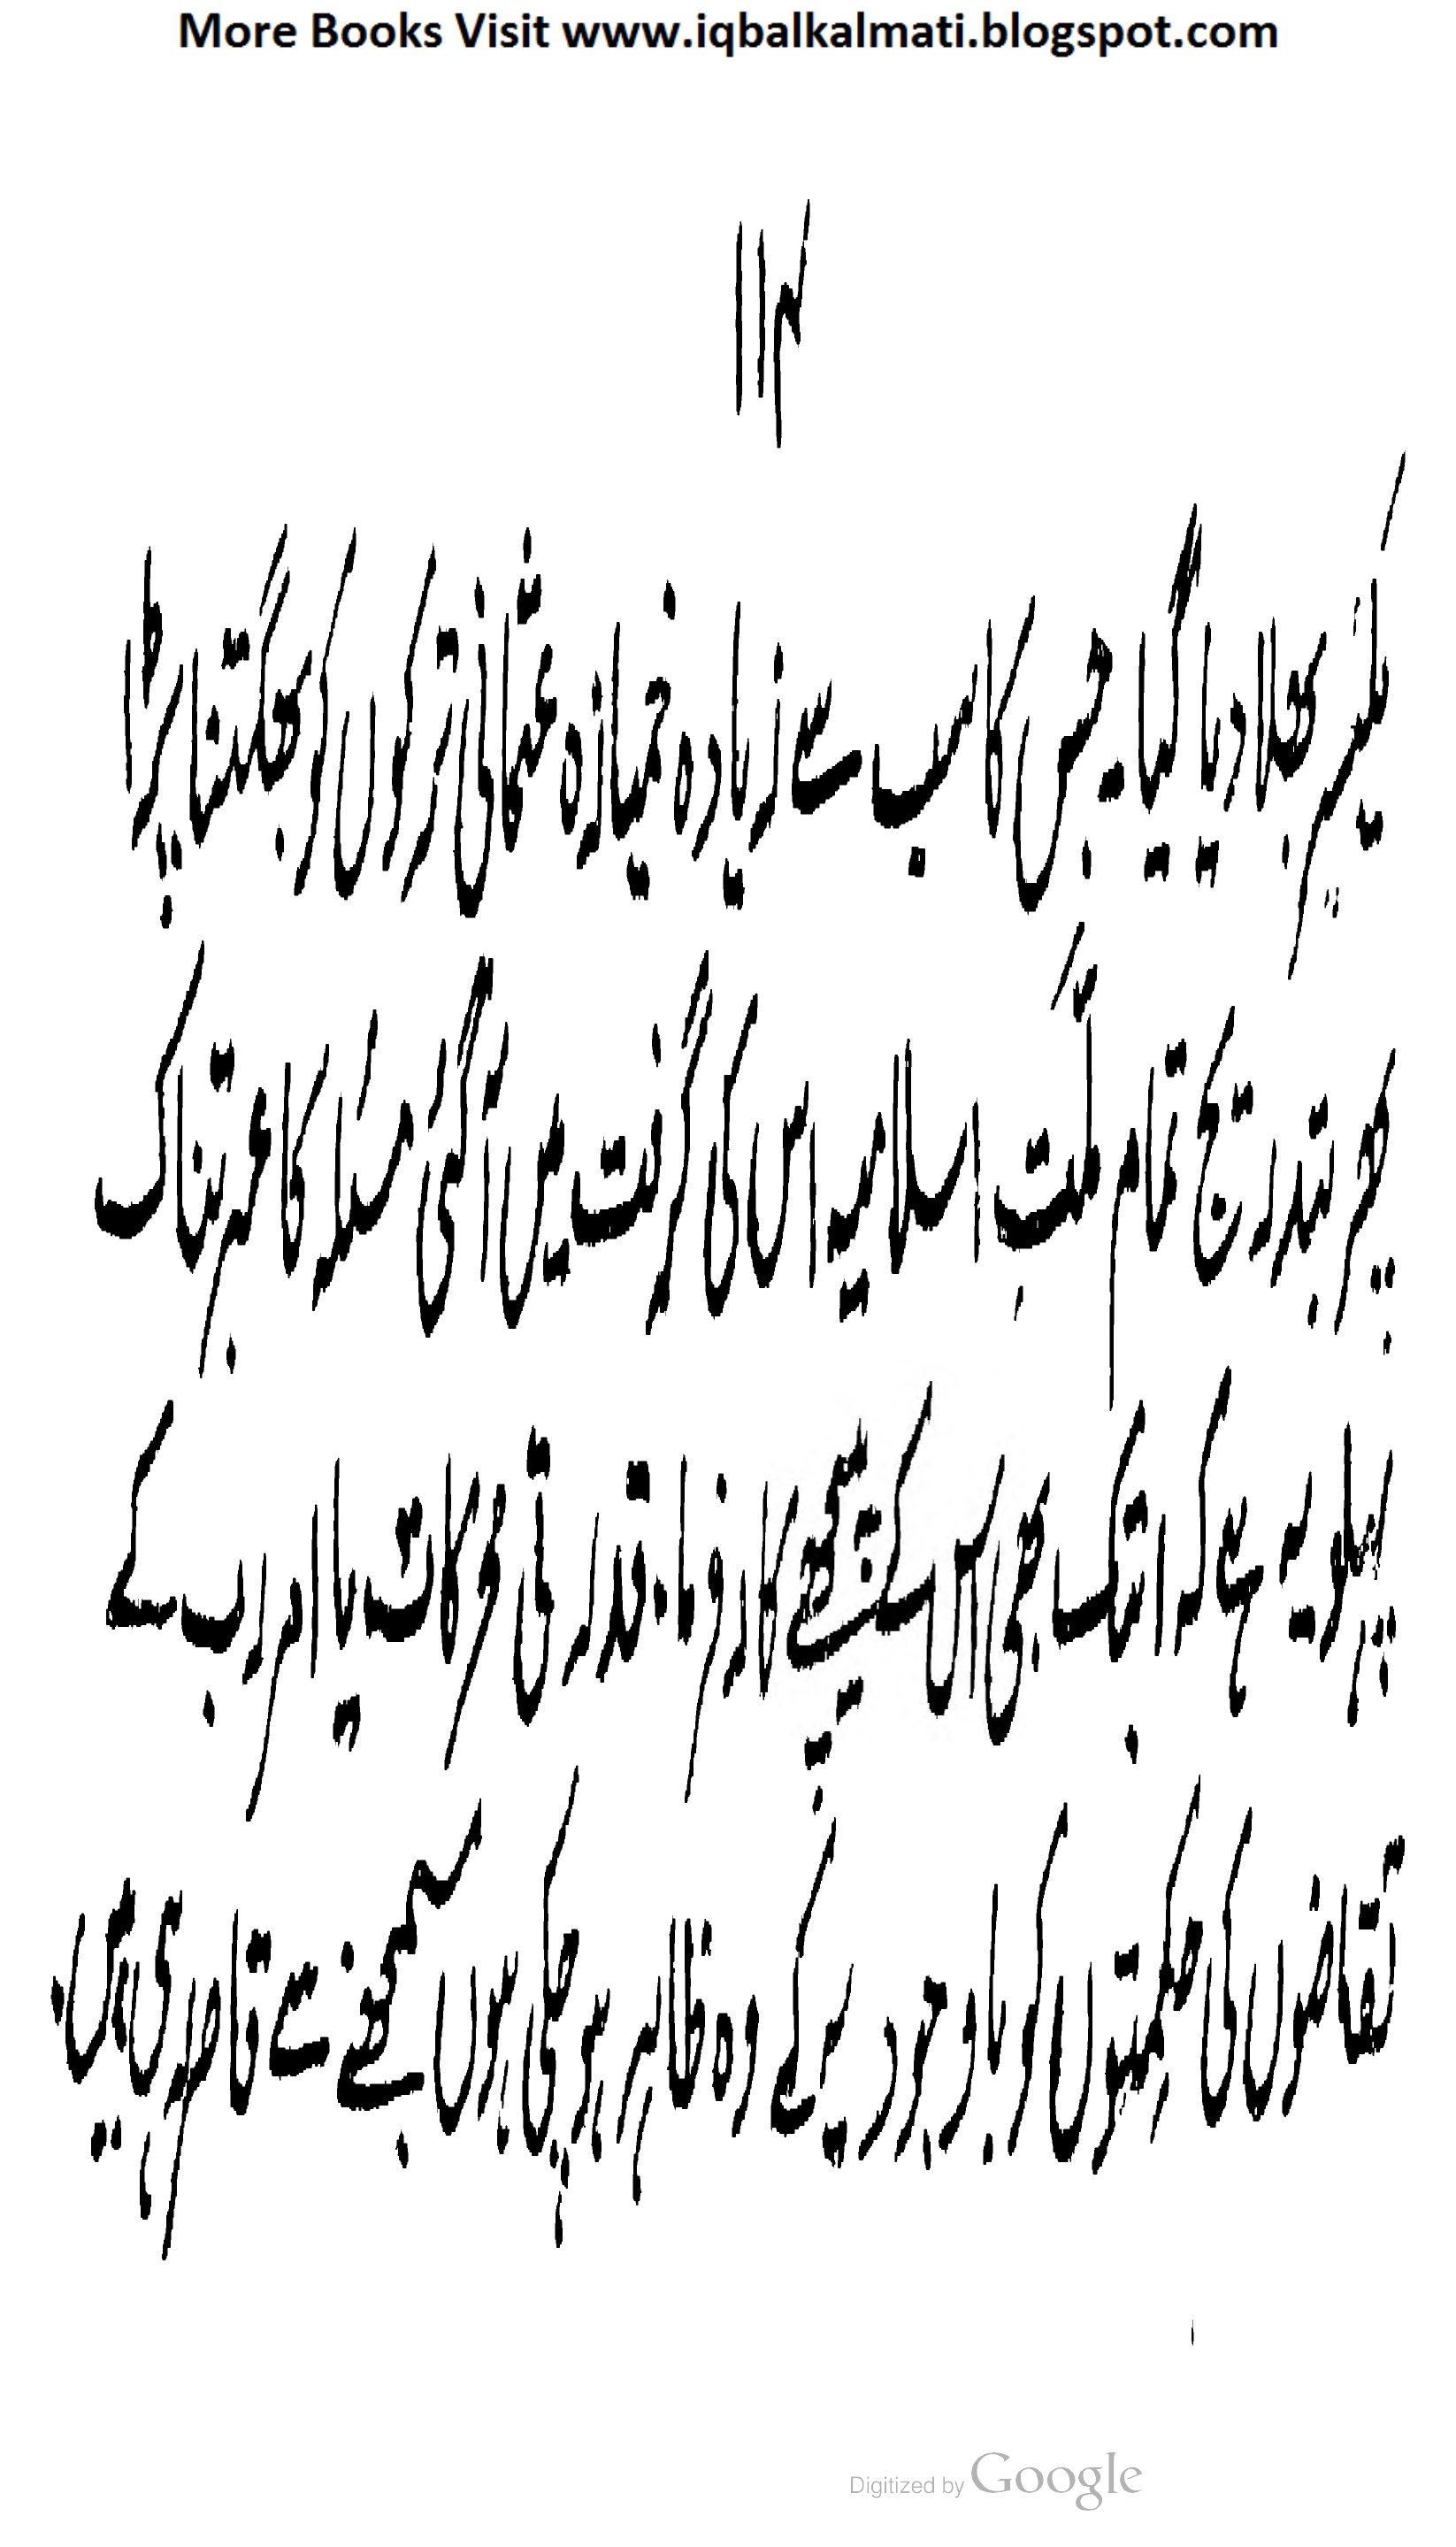 More Books Visit www.iqbalkalmati.blogspot.com
۱۱۴
یکسر بھلا دیا گیا۔ جس کا سب سے زیادہ خمیازہ عثمانی ترکوں کو بھگتنا پڑا
پھر بتدریج تمام ملّتِ اسلامیہ اس کی گرفت میں آگئی مسئلہ کا عبرتناک
پہلو یہ ہے کہ ابتک بھی اس کے پیچھے کارفرما، قدرتی محرکات یا امر رب کے
تقاضوں کی حکمتوں کو باوجود یکہ وہ ظاہر ہو چکی ہوں سمجھنے سے قاصر ہی ہیں۔
Digitized by Google